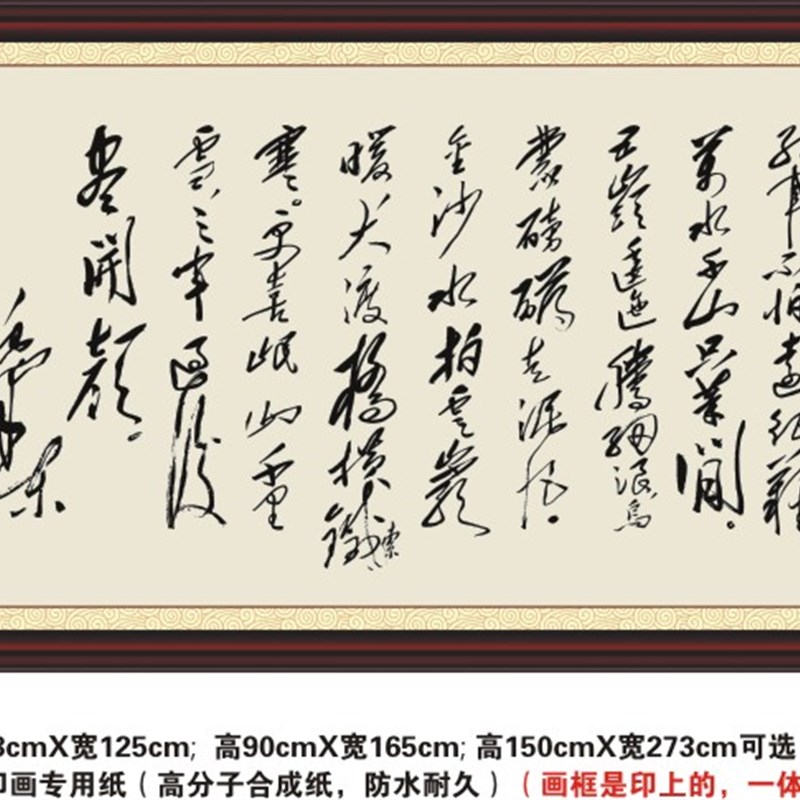 紅軍不怕遠征難
萬水千山只等閒。
五嶺逶迤騰細浪烏
蒙磅礴走泥丸。
金沙水拍雲崖
暖大渡橋橫鐵索
寒。更喜岷山千里
雪，三軍過後
盡開顏。
毛澤東
8cmX宽125cm; 高90cmX宽165cm; 高150cmX宽273cm可选
印画专用纸（高分子合成纸，防水耐久）（画框是印上的，一体